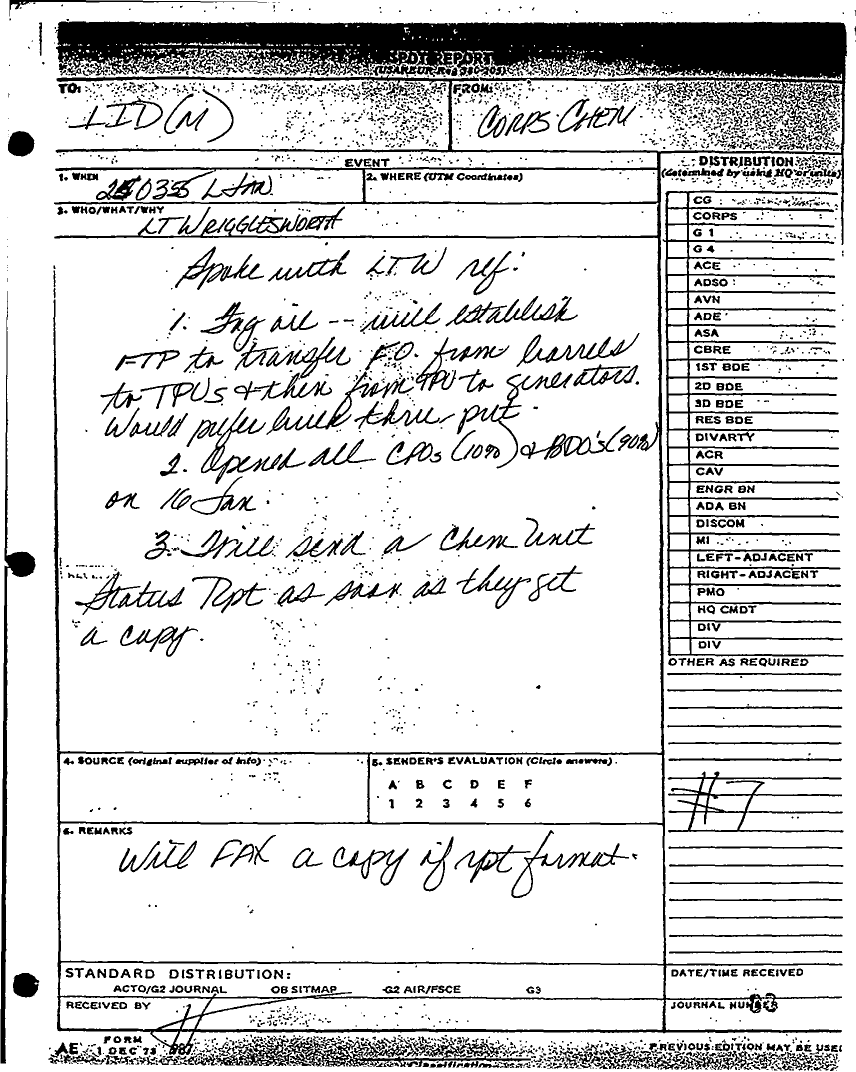 SPOT REPORT
(USAREUR Reg 380-205)
TO:
FROM:
1ID(M)
CORPS CHEM
EVENT
DISTRIBUTION
(determined by using HQ or units)
1. WHEN
0355 L JAN
2. WHERE (UTM Coordinates)
3. WHO/WHAT/WHY
LT WRIGGLESWORTH
Spoke with LTW ref:
1. Fog oil -- will establish
FTP to transfer F.O. from barrels
to TPUs & then from TPU to generators.
Would prefer thru put.
2. Opened all CPOs (10%) & BDO's (90%)
on 16 Jan.
3. Will send a Chem Unit
Status Rpt as soon as they get
a copy.
CG
CORPS
G 1
G 4
ACE
ADSO
AVN
ADE
ASA
CBRE
1ST BDE
2D BDE
3D BDE
RES BDE
DIVARTY
ACR
CAV
ENGR BN
ADA BN
DISCOM
MI
LEFT-ADJACENT
RIGHT-ADJACENT
PMO
HQ CMDT
DIV
DIV
OTHER AS REQUIRED
#7
4. SOURCE (original supplier of info)
5. SENDER'S EVALUATION (Circle answers)
A B C D E F
1 2 3 4 5 6
6. REMARKS
Will FAX a copy of rpt format.
STANDARD DISTRIBUTION:
ACTO/G2 JOURNAL OB SITMAP G2 AIR/FSCE G3
RECEIVED BY
DATE/TIME RECEIVED
JOURNAL NUMBER
AE FORM 1 DEC 73
PREVIOUS EDITION MAY BE USED
Classification